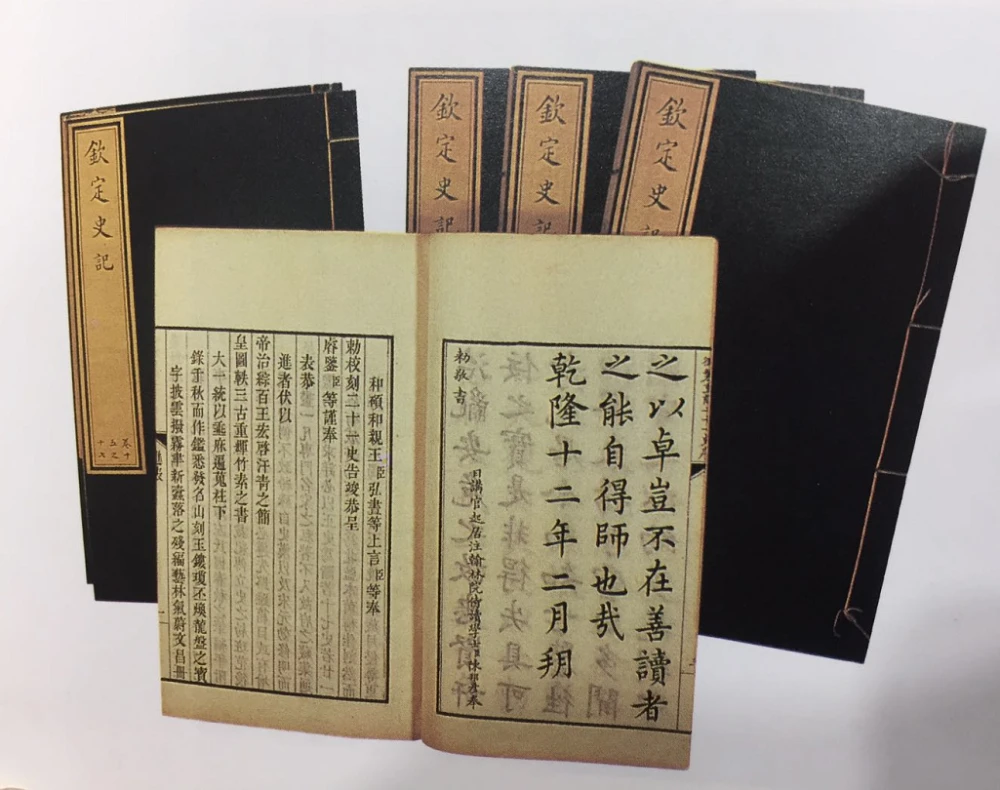 欽定史記
欽定史記
欽定史記
欽定史記
之以卓豈不在善讀者
之能自得師也哉
乾隆十二年二月朔
日講官起居注翰林院侍讀學士臣陳邦彥奉
勅敬書
和碩和親王臣弘晝等上言臣等奉
勅校刻二十一史告竣恭呈
睿鑒臣等謹奉
表恭
進者伏以
帝治綜百王宏啓汗青之簡
皇圖軼三古重輝竹素之書
大一統以垂庥遍蒐柱下
錄千秋而作鑑悉發名山刻玉鏤瓊丕煥龍盤之寶
字披雲撥霧聿新蠹落之殘編藝林氣蔚文昌冊